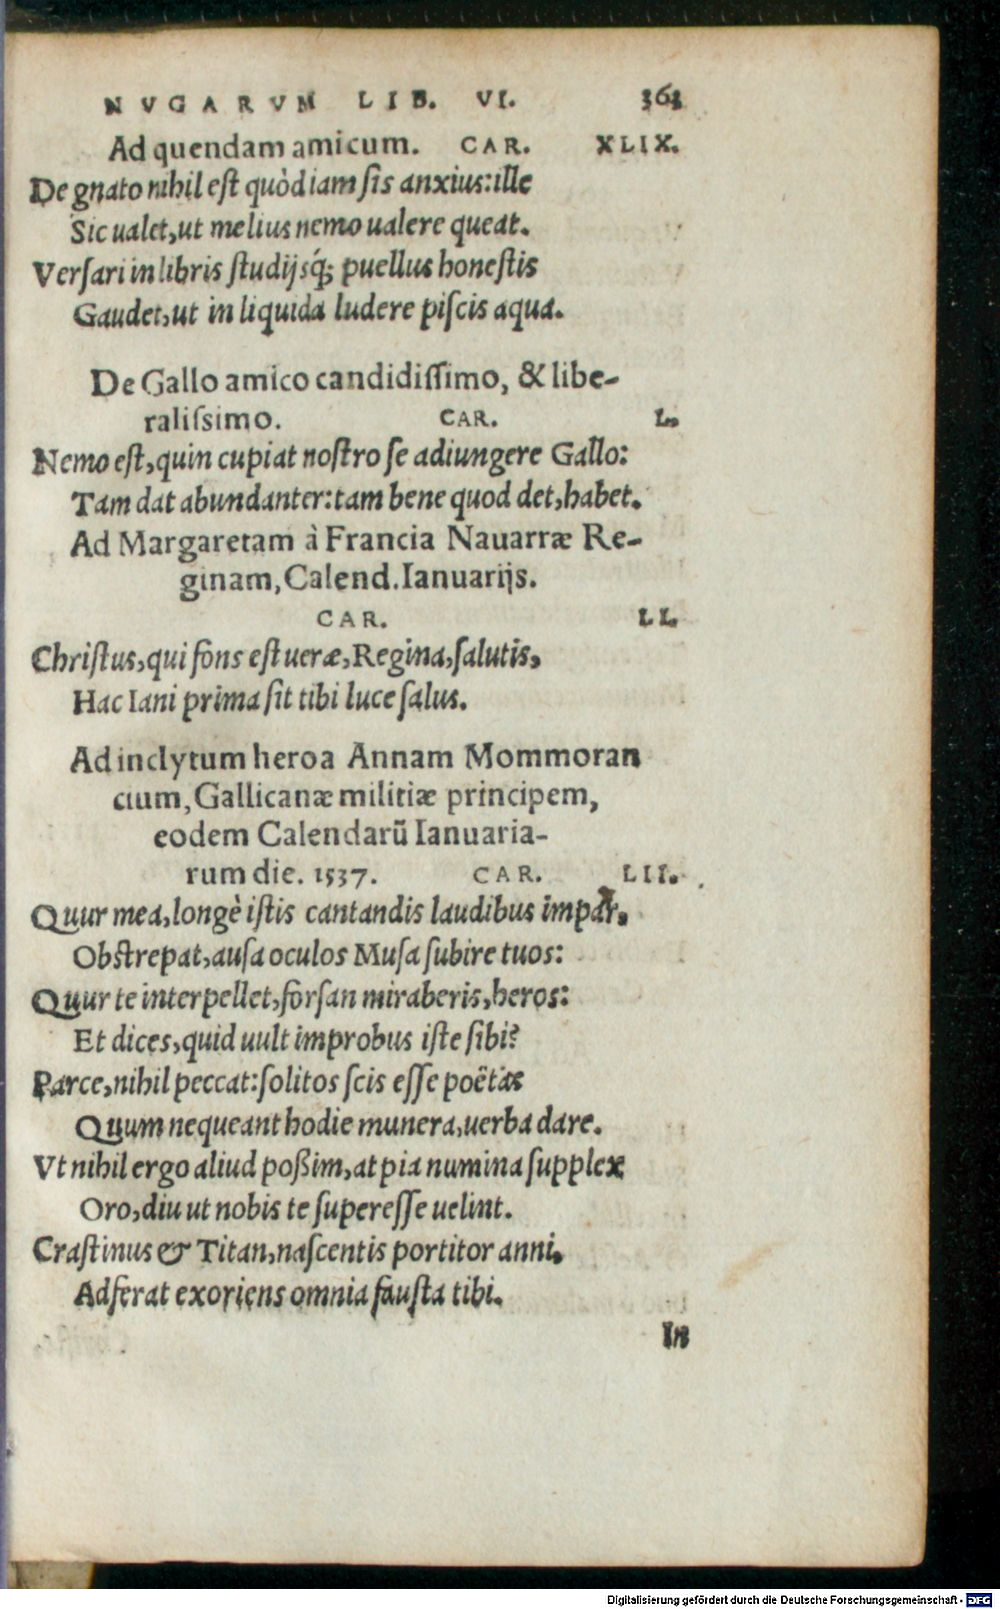 NVGARVM LIB. VI. 361
Ad quendam amicum. CAR. XLIX.
De gnato nihil est quòd iam sis anxius: ille
Sic ualet, ut melius nemo ualere queat.
Versari in libris studijsq́; puellus honestis
Gaudet, ut in liquida ludere piscis aqua.
De Gallo amico candidissimo, & libe-
ralissimo. CAR. L.
Nemo est, quin cupiat nostro se adiungere Gallo:
Tam dat abundanter: tam bene quod det, habet.
Ad Margaretam à Francia Nauarræ Re-
ginam, Calend. Ianuarijs.
CAR. LI.
Christus, qui fons est ueræ, Regina, salutis,
Hac Iani prima sit tibi luce salus.
Ad inclytum heroa Annam Mommoran
cium, Gallicanæ militiæ principem,
eodem Calendarũ Ianuaria-
rum die. 1537. CAR. LII.
Quur mea, longè istis cantandis laudibus impar,
Obstrepat, ausa oculos Musa subire tuos:
Quur te interpellet, forsan miraberis, heros:
Et dices, quid uult improbus iste sibi?
Parce, nihil peccat: solitos scis esse poëtas
Quum nequeant hodie munera, uerba dare.
Vt nihil ergo aliud poßim, at pia numina supplex
Oro, diu ut nobis te superesse uelint.
Crastinus & Titan, nascentis portitor anni,
Adferat exoriens omnia fausta tibi.
In
Digitalisierung gefördert durch die Deutsche Forschungsgemeinschaft - DFG